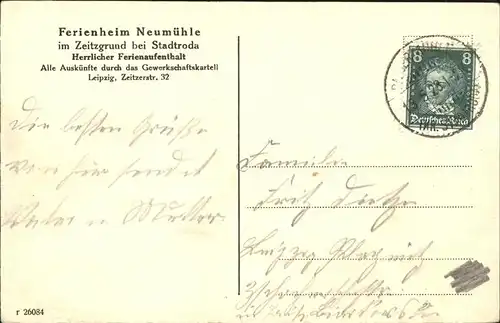 Ferienheim Neumühle
im Zeitzgrund bei Stadtroda
Herrlicher Ferienaufenthalt
Alle Auskünfte durch das Gewerkschaftskartell
Leipzig, Zeitzerstr. 32
8 8
Deutsches Reich
Die besten Grüße
von hier sendet
Vater u Mutter
Familie
Fritz Dietze
Leipzig
r 26084